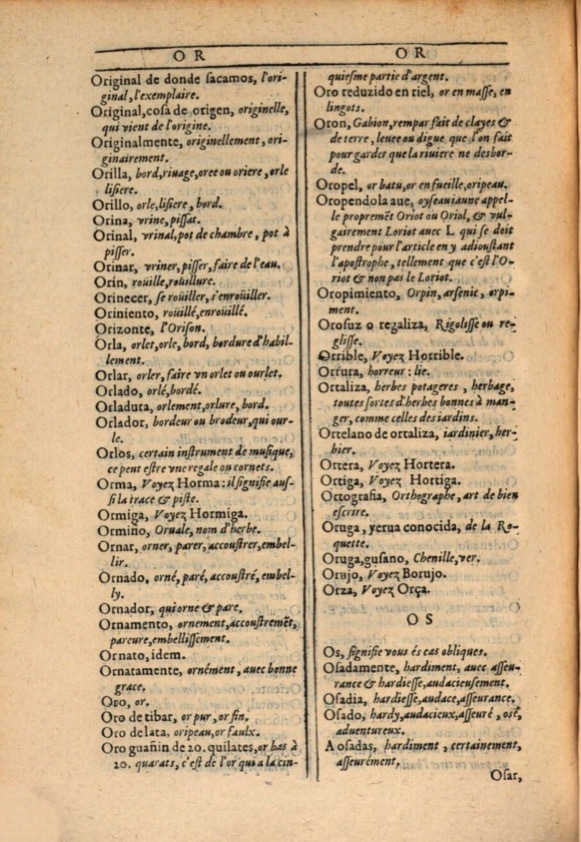 OR
Original de donde sacamos, l'ori-
ginal, l'exemplaire.
Original, cosa de origen, originelle,
qui vient de l'origine.
Originalmente, originellement, ori-
ginairement.
Orilla, bord, riuage, oree ou oriere, orle
lisiere.
Orillo, orle, lisiere, bord.
Orina, vrine, pissat.
Orinal, vrinal, pot de chambre, pot à
pisser.
Orinar, vriner, pisser, faire de l'eau.
Orin, roüille, roüillure.
Orinecer, se roüiller, s'enroüiller.
Oriniento, roüillé, enroüillé.
Orizonte, l'Orison.
Orla, orlet, orle, bord, bordure d'habil-
lement.
Orlar, orler, faire vn orlet ou ourlet.
Orlado, orlé, bordé.
Orladura, orlement, orlure, bord.
Orlador, bordeur ou brodeur, qui our-
le.
Orlos, certain instrument de musique,
ce peut estre vne regale ou cornets.
Orma, Voyez Horma: il signifie aus-
si la trace & piste.
Ormiga, Voyez Hormiga.
Ormino, Oruale, nom d'herbe.
Ornar, orner, parer, accoustrer, embel-
lir.
Ornado, orné, paré, accoustré, embel-
ly.
Ornador, qui orne & pare.
Ornamento, ornement, accoustremẽt,
pareure, embellissement.
Ornato, idem.
Ornatamente, ornément, auec bonne
grace.
Oro, or.
Oro de tibar, or pur, or fin.
Oro de lata, oripeau, or faulx.
Oro guañin de 20. quilates, or bas à
20. quarats, c'est de l'or qui a la cin-
OR
quiesme partie d'argent.
Oro reduzido en riel, or en masse, en
lingots.
Oron, Gabion, rempar fait de clayes &
de terre, leuee ou digue que l'on fait
pour garder que la riuiere ne desbor-
de.
Oropel, or batu, or en fueille, oripeau.
Oropendola aue, oyseau iaune appel-
le propremẽt Oriot ou Oriol, & vul-
gairement Loriot auec L qui se doit
prendre pour l'article en y adioustant
l'apostrophe, tellement que c'est l'O-
riot & non pas le Loriot.
Oropimiento, Orpin, arsenic, orpi-
ment.
Orosuz o regaliza, Rigolisse ou re-
glisse.
Orrible, Voyez Horrible.
Orrura, horreur: lie.
Ortaliza, herbes potageres, herbage,
toutes sortes d'herbes bonnes à man-
ger, comme celles des iardins.
Ortelano de ortaliza, iardinier, her-
bier.
Ortera, Voyez Hortera.
Ortiga, Voyez Hortiga.
Ortografia, Orthographe, art de bien
escrire.
Oruga, yerua conocida, de la Ro-
quette.
Oruga, gusano, Chenille, ver.
Orujo, Voyez Borujo.
Orza, Voyez Orça.
OS
Os, signifie vous és cas obliques.
Osadamente, hardiment, auec asseu-
rance & hardiesse, audacieusement.
Osadia, hardiesse, audace, asseurance.
Osado, hardy, audacieux, asseuré, osé,
aduentureux.
A osadas, hardiment, certainement,
asseurément.
Osar,